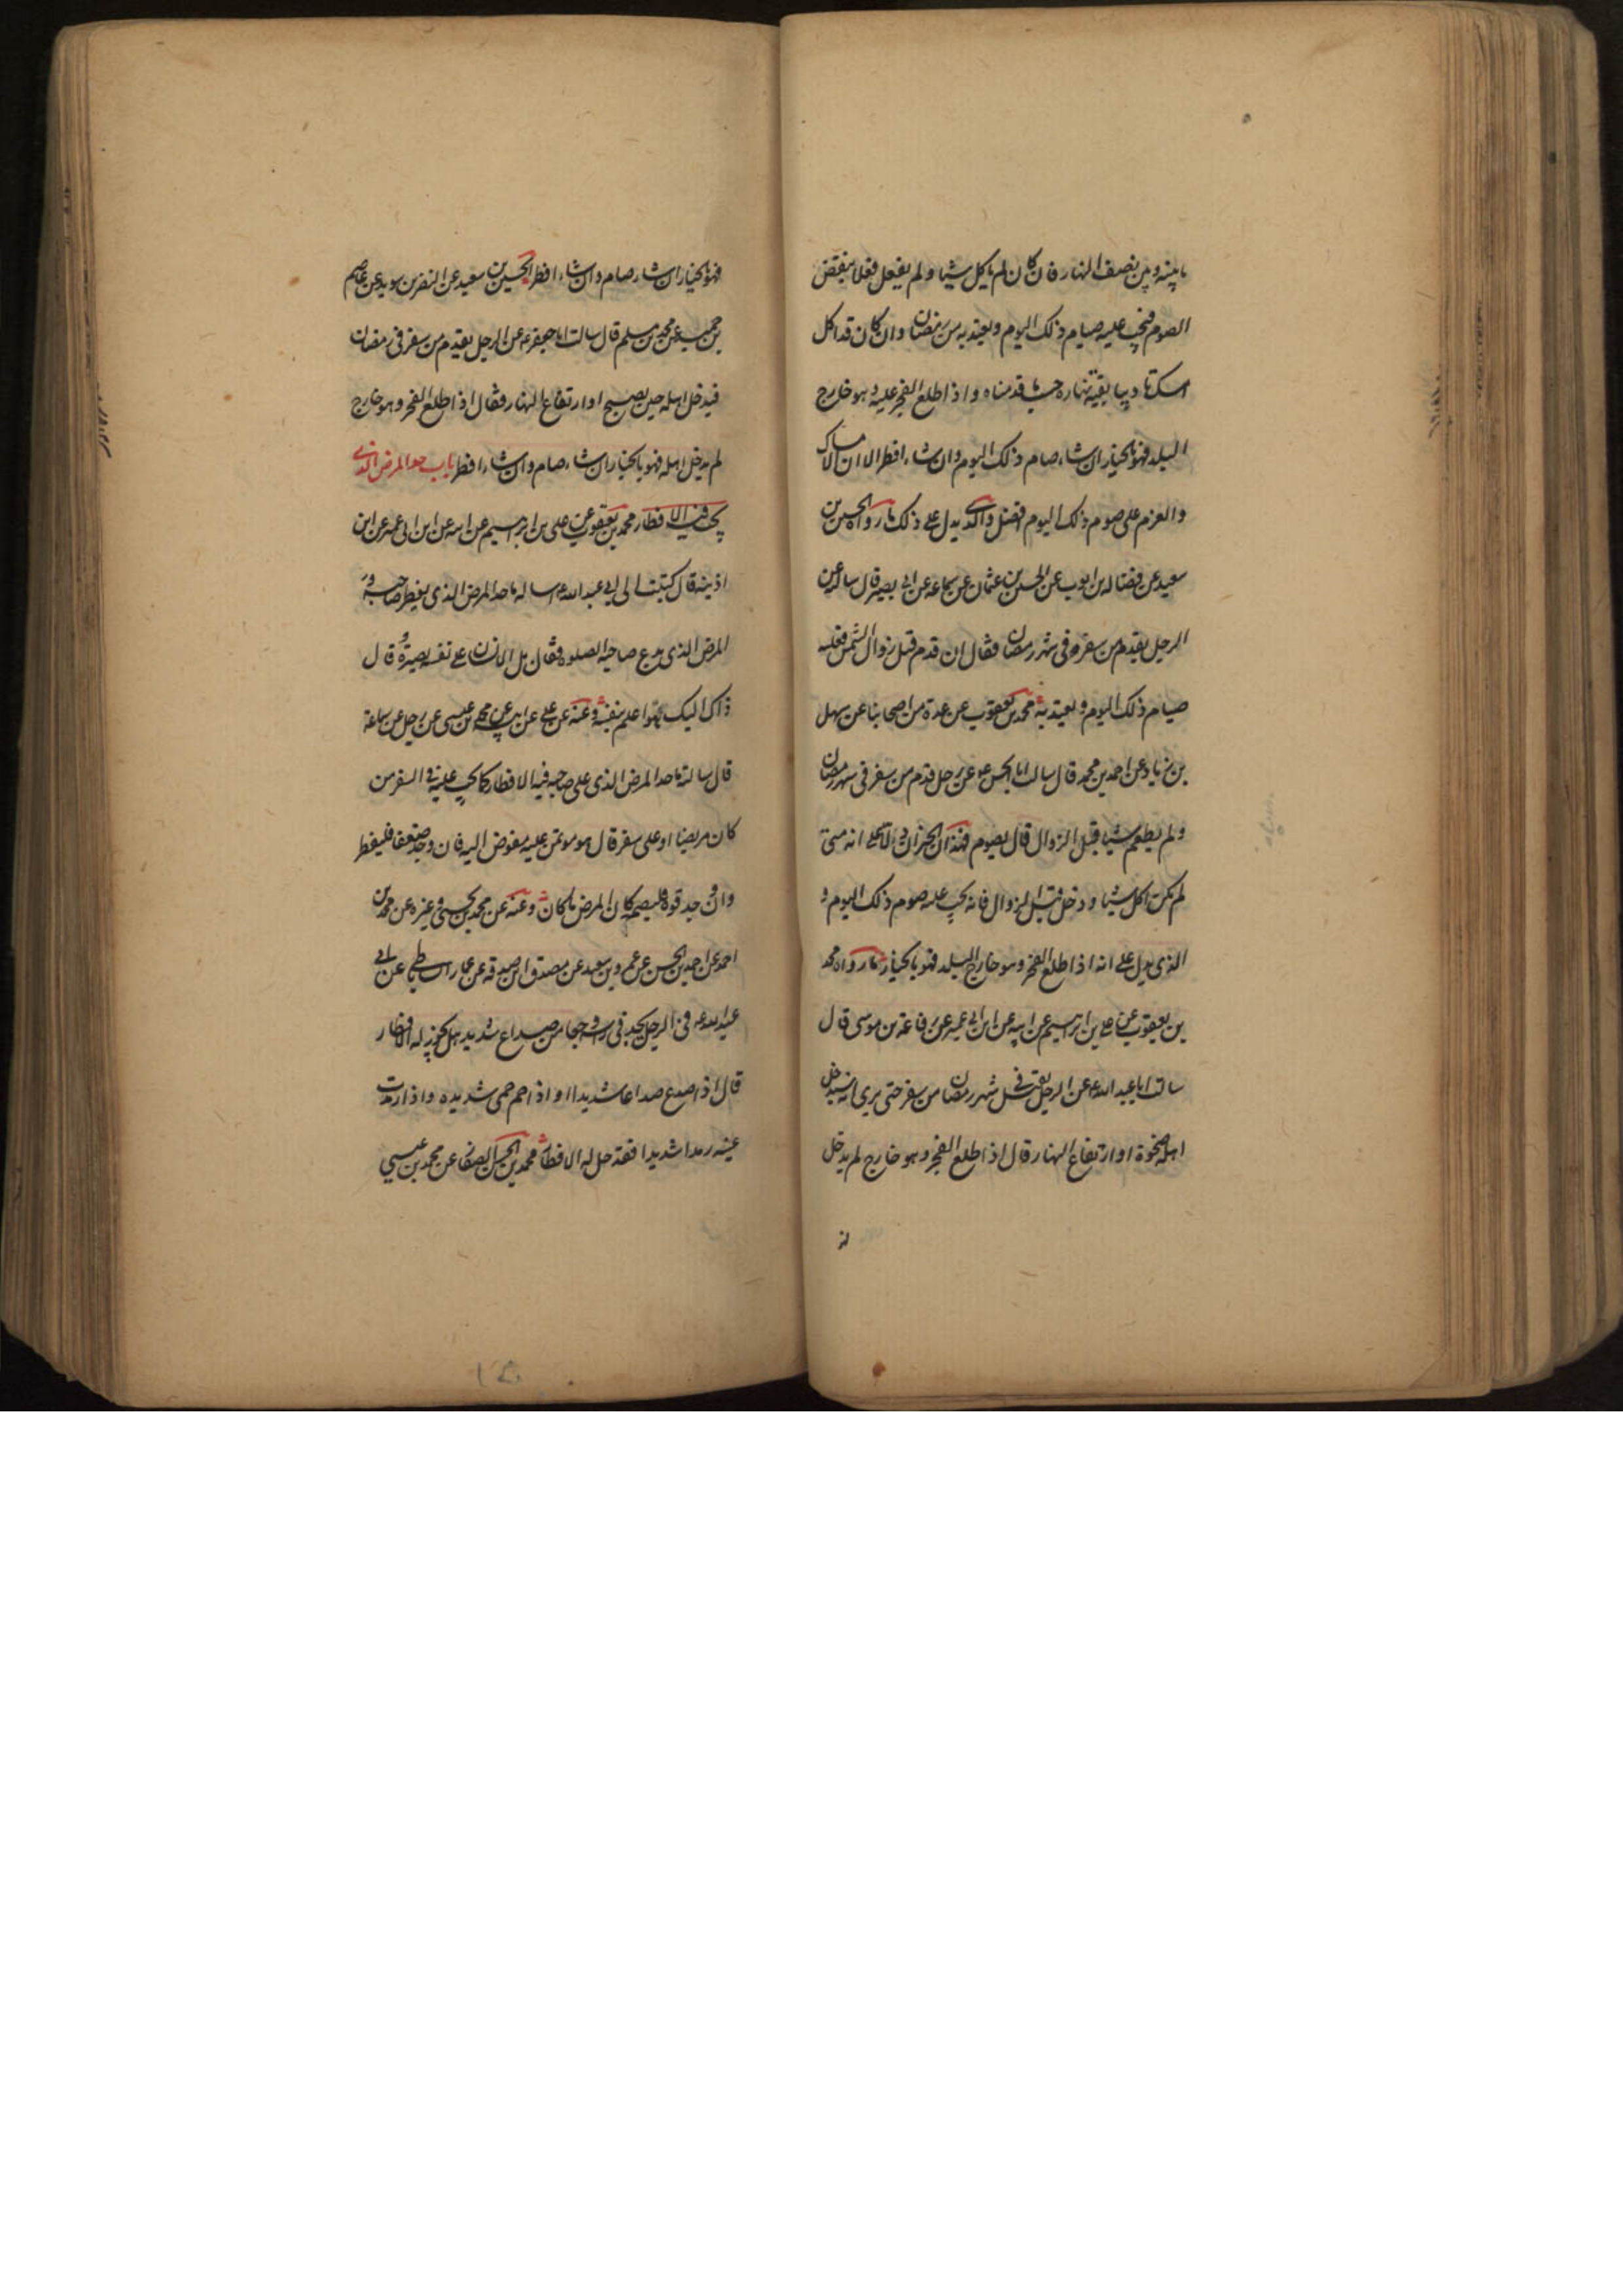 ما بينه وبين نصف النهار فان كان لم ياكل شيئا ولم يفعل فعلا ينقض
الصوم فيجب عليه صيام ذلك اليوم ويعتد به من رمضان وان كان قد اكل
امسك تاديبا بقية نهاره حسب ما قدمناه واذا طلع الفجر عليه وهو خارج
البلد فهو بالخيار ان شاء صام ذلك اليوم وان شاء افطر الا ان الامساك
والعزم على صوم ذلك اليوم افضل والذى يدل على ذلك ما رواه الحسين بن
سعيد عن فضاله بن ايوب عن الحسين بن عثمان عن سماعه عن ابى بصير قال سالته عن
الرجل يقدم من سفره فى شهر رمضان فقال ان قدم قبل زوال الشمس فعليه
صيام ذلك اليوم ويعتد به محمد بن يعقوب عن عدة من اصحابنا عن سهل
بن زياد عن احمد بن محمد قال سالت ابا الحسن ع عن رجل قدم من سفر فى شهر رمضان
ولم يطعم شيئا قبل الزوال قال يصوم فهذان الخبران دالان على انه متى
لم يكن اكل شيئا ودخل قبل الزوال فانه يجب عليه صوم ذلك اليوم و
الذى يدل على انه اذا طلع الفجر وهو خارج البلد فهو بالخيار ما رواه محمد
بن يعقوب عن على بن ابرهيم عن ابيه عن ابن ابى عمير عن رفاعة بن موسى قال
سالت ابا عبد الله ع عن الرجل يقبل فى شهر رمضان من سفر حتى يرى انه سيدخل
اهله ضحوة او ارتفاع النهار قال اذا طلع الفجر وهو خارج لم يدخل
فهو بالخيار ان شاء صام وان شاء افطر الحسين بن سعيد عن النضر بن سويد عن عاصم
بن حميد عن محمد بن مسلم قال سالت ابا جعفر ع عن الرجل يقدم من سفر فى رمضان
فيدخل اهله حين يصبح او ارتفاع النهار فقال اذا طلع الفجر وهو خارج
لم يدخل اهله فهو بالخيار ان شاء صام وان شاء افطر باب حد المرض الذى
يجب فيه الافطار محمد بن يعقوب عن على بن ابرهيم عن ابيه عن ابن ابى عمير عن ابن
اذينه قال كتبت الى ابى عبد الله ع اساله ما حد المرض الذى يفطر صاحبه و
المرض الذى يدع صاحبه الصلوه فقال بل الانسان على نفسه بصيرة وقال
ذاك اليك هو اعلم بنفسه وعنه عن على عن ابيه عن محمد بن عيسى عن رجل عن سماعة
قال سالته ما حد المرض الذى على صاحبه فيه الافطار كما يجب عليه فى السفر من
كان مريضا او على سفر قال هو موتمن عليه مفوض اليه فان وجد ضعفا فليفطر
وان وجد قوة فليصمه كان المرض ما كان وعنه عن محمد بن يحيى وغيره عن محمد بن
احمد عن احمد بن الحسن عن عمرو بن سعيد عن مصدق بن صدقه عن عمار الساباطى عن ابى
عبد الله ع فى الرجل يجد فى راسه وجعا من صداع شديد هل يجوز له الافطار
قال اذا صدع صداعا شديدا واذا حم حمى شديده واذا رمدت
عينه رمدا شديدا فقد حل له الافطار محمد بن الحسن الصفار عن محمد بن عيسى